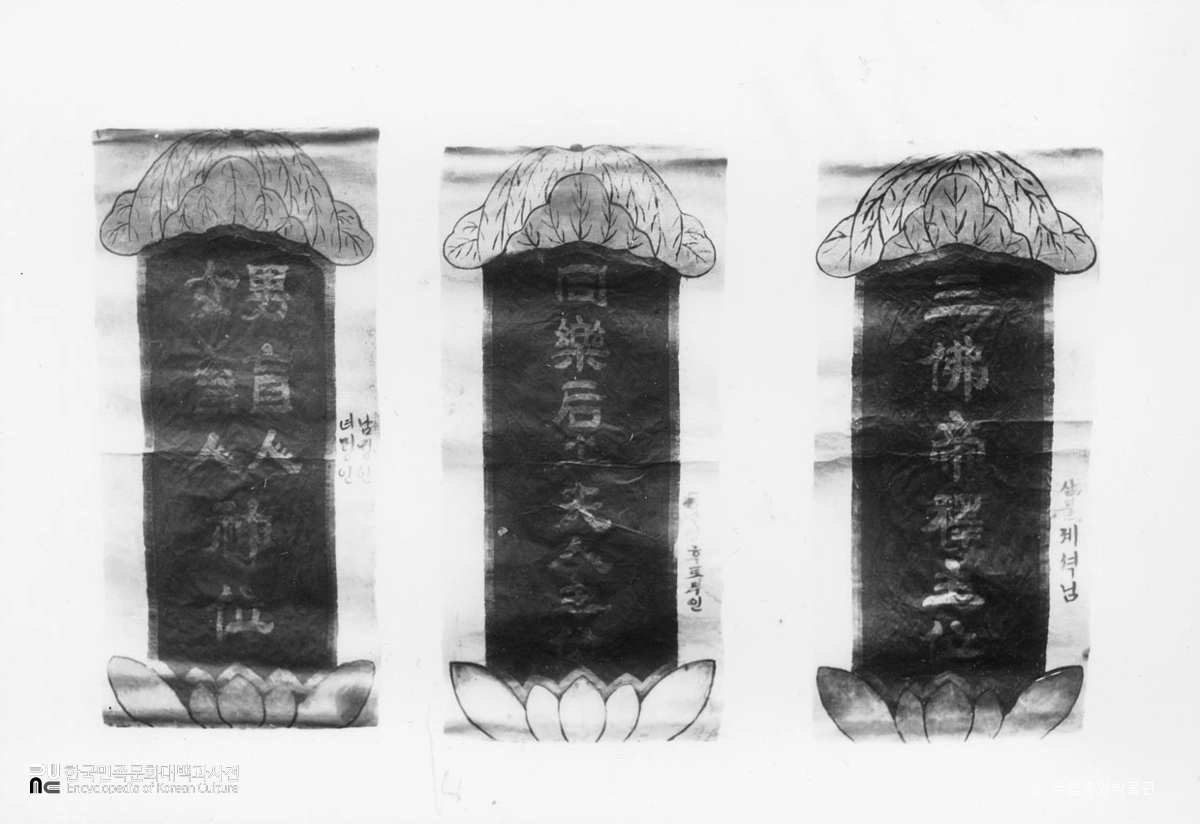 男盲人
女盲人
神仙
녀밍인
同樂后
夫人主
후토부인
三佛帝釋主仙
삼불제석님
한국민족문화대백과사전
Encyclopedia of Korean Culture
국립중앙박물관